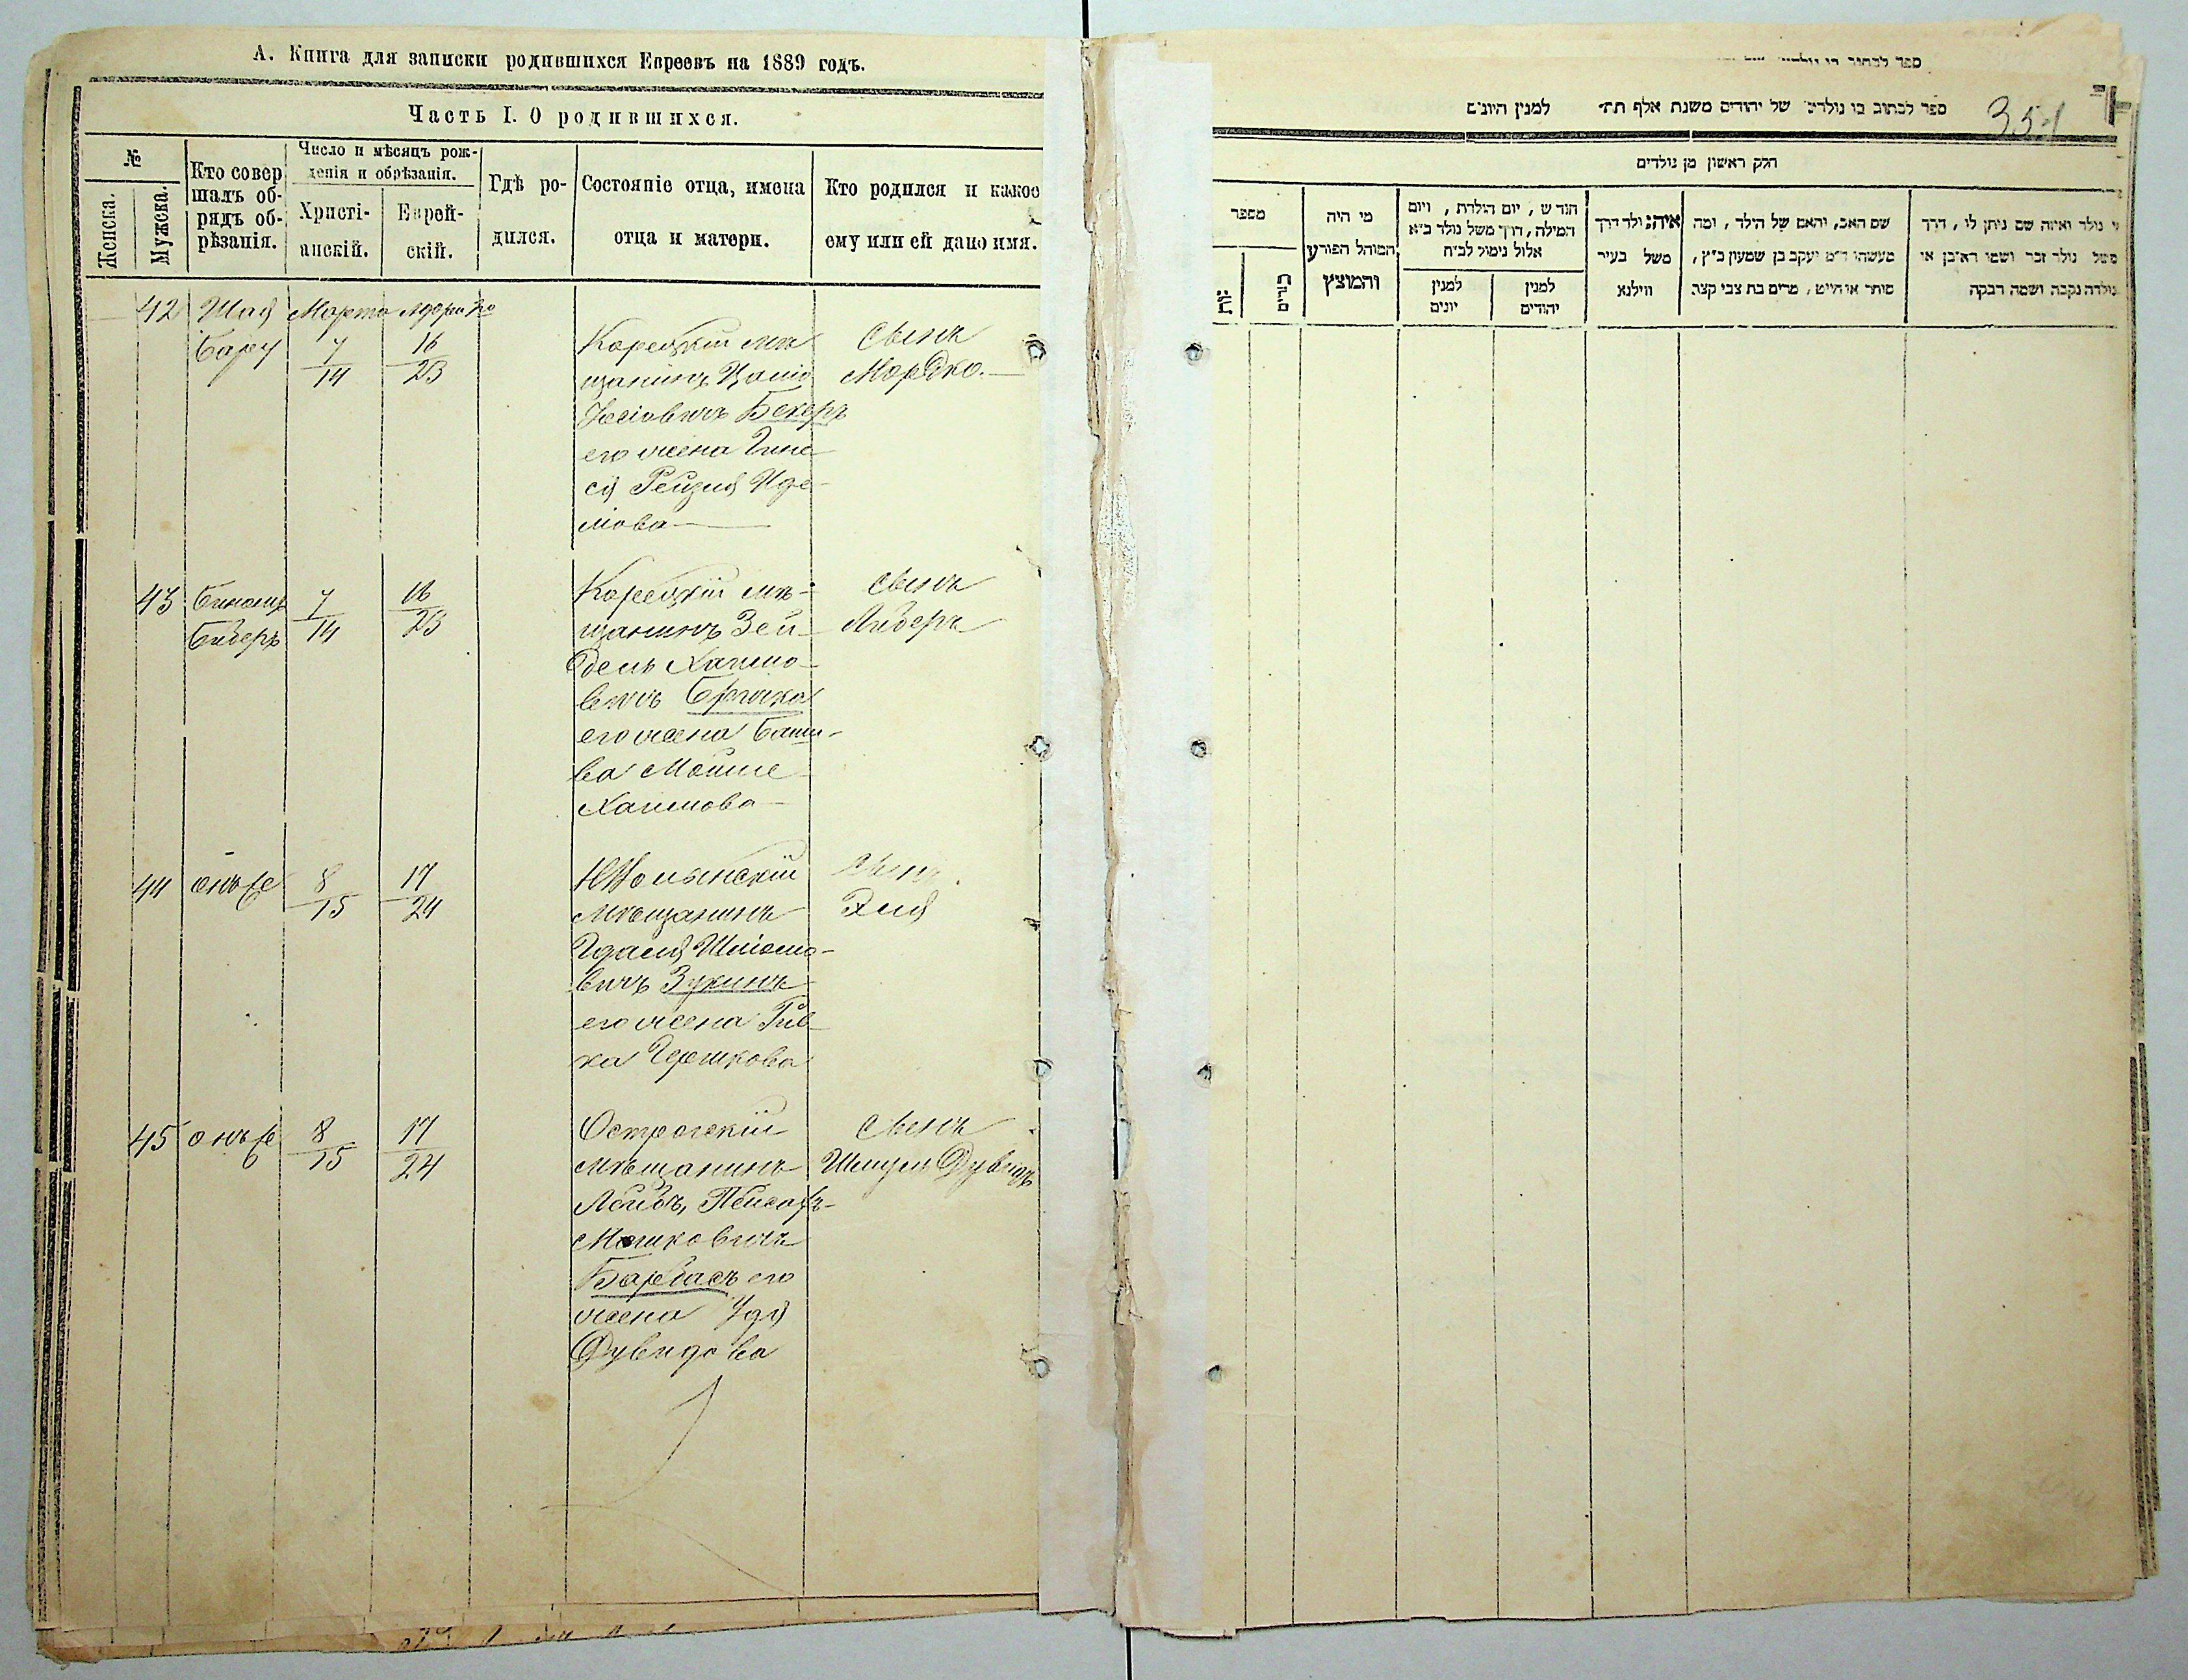 А. Книга для записки родившихся Евреевъ на 1889 годъ.
Часть I. О родившихся.
№
Женска.
Мужска.
Кто совер
шалъ об-
рядъ об-
рѣзанія.
Число и мѣсяцъ рож-
денія и обрѣзанія.
Христі-
анскій.
Еврей-
скій.
Гдѣ ро-
дился.
Состояніе отца, имена
отца и матери.
Кто родился и какое
ему или ей дано имя.
42
Шая
Бару
Марта
7
14
16
23
Корецкій мѣ
щанинъ
Іосіовичъ Бекеръ
его жена Гине
ся Рейзя Иде-
лиова
Сынъ
Мордко.
43
Биберъ
7
14
16
23
Корецкій мѣ-
щанинъ Зей-
дель Хаимо-
вичъ
его жена Бати-
ва Мошие
Хаимова
Сынъ
Либеръ
44
онъ же
8
15
17
24
мѣщанинъ
Гдаля Шліомо-
вичъ Зукинъ
его жена Рив-
ка Гершкова
Сынъ
Эля
45
онъ же
8
15
17
24
Острогскій
мѣщанинъ
Лейбъ, Пейсахъ-
Мошковичъ
Барбасъ его
жена Удя
Дувидова
Сынъ
Шмуль Дувидъ
ספר לכתוב בו נולדים של יהודים משנת אלף תת למנין היונים
351
חלק ראשון מן נולדים
מספר
מי היה
המוהל הפורע
והמוצץ
חודש, יום הולדת, ויום
המילה, דרך משל נולד כ״א
אלול נימול לכ״ח
למנין
יונים
למנין
יהודים
איה נולד דרך
משל בעיר
ווילנא
שם האב, והאם של הילד, ומה
מעשהו ד״מ יעקב בן שמעון כ״ץ,
סוחר או חייט, מרים בת צבי קצב
נולד ואיזה שם ניתן לו, דרך
משל נולד זכר ושמו ראובן או
נולדה נקבה ושמה רבקה